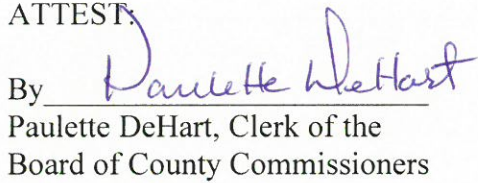 ATTEST:
By Paulette DeHart
Paulette DeHart, Clerk of the
Board of County Commissioners